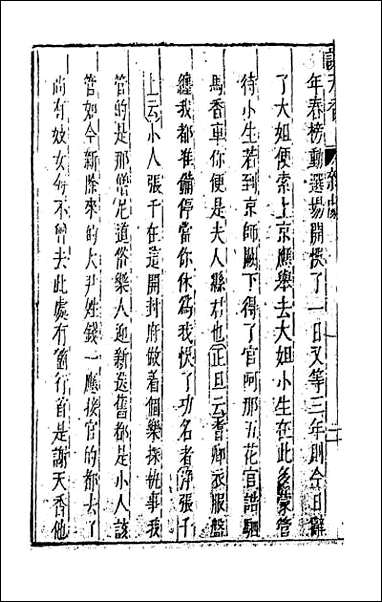 謝天香 雜劇 二
年春榜動選場開悞了一日又等三年則今日辭
了大姐便索上京應舉去大姐小生在此多蒙管
待小生若到京師闕下得了官阿那五花官誥駟
馬香車你便是夫人縣君也正旦云耆卿衣服盤
纏我都准備停當你休爲我悞了功名者淨張千
上云小人張千在這開封府做着個樂探執事我
管的是那僧尼道俗樂人迎新送舊都是小人該
管如今新除來的大尹姓錢一應接官的都去了
尚有妓女每不曾去此處有箇行首是謝天香他